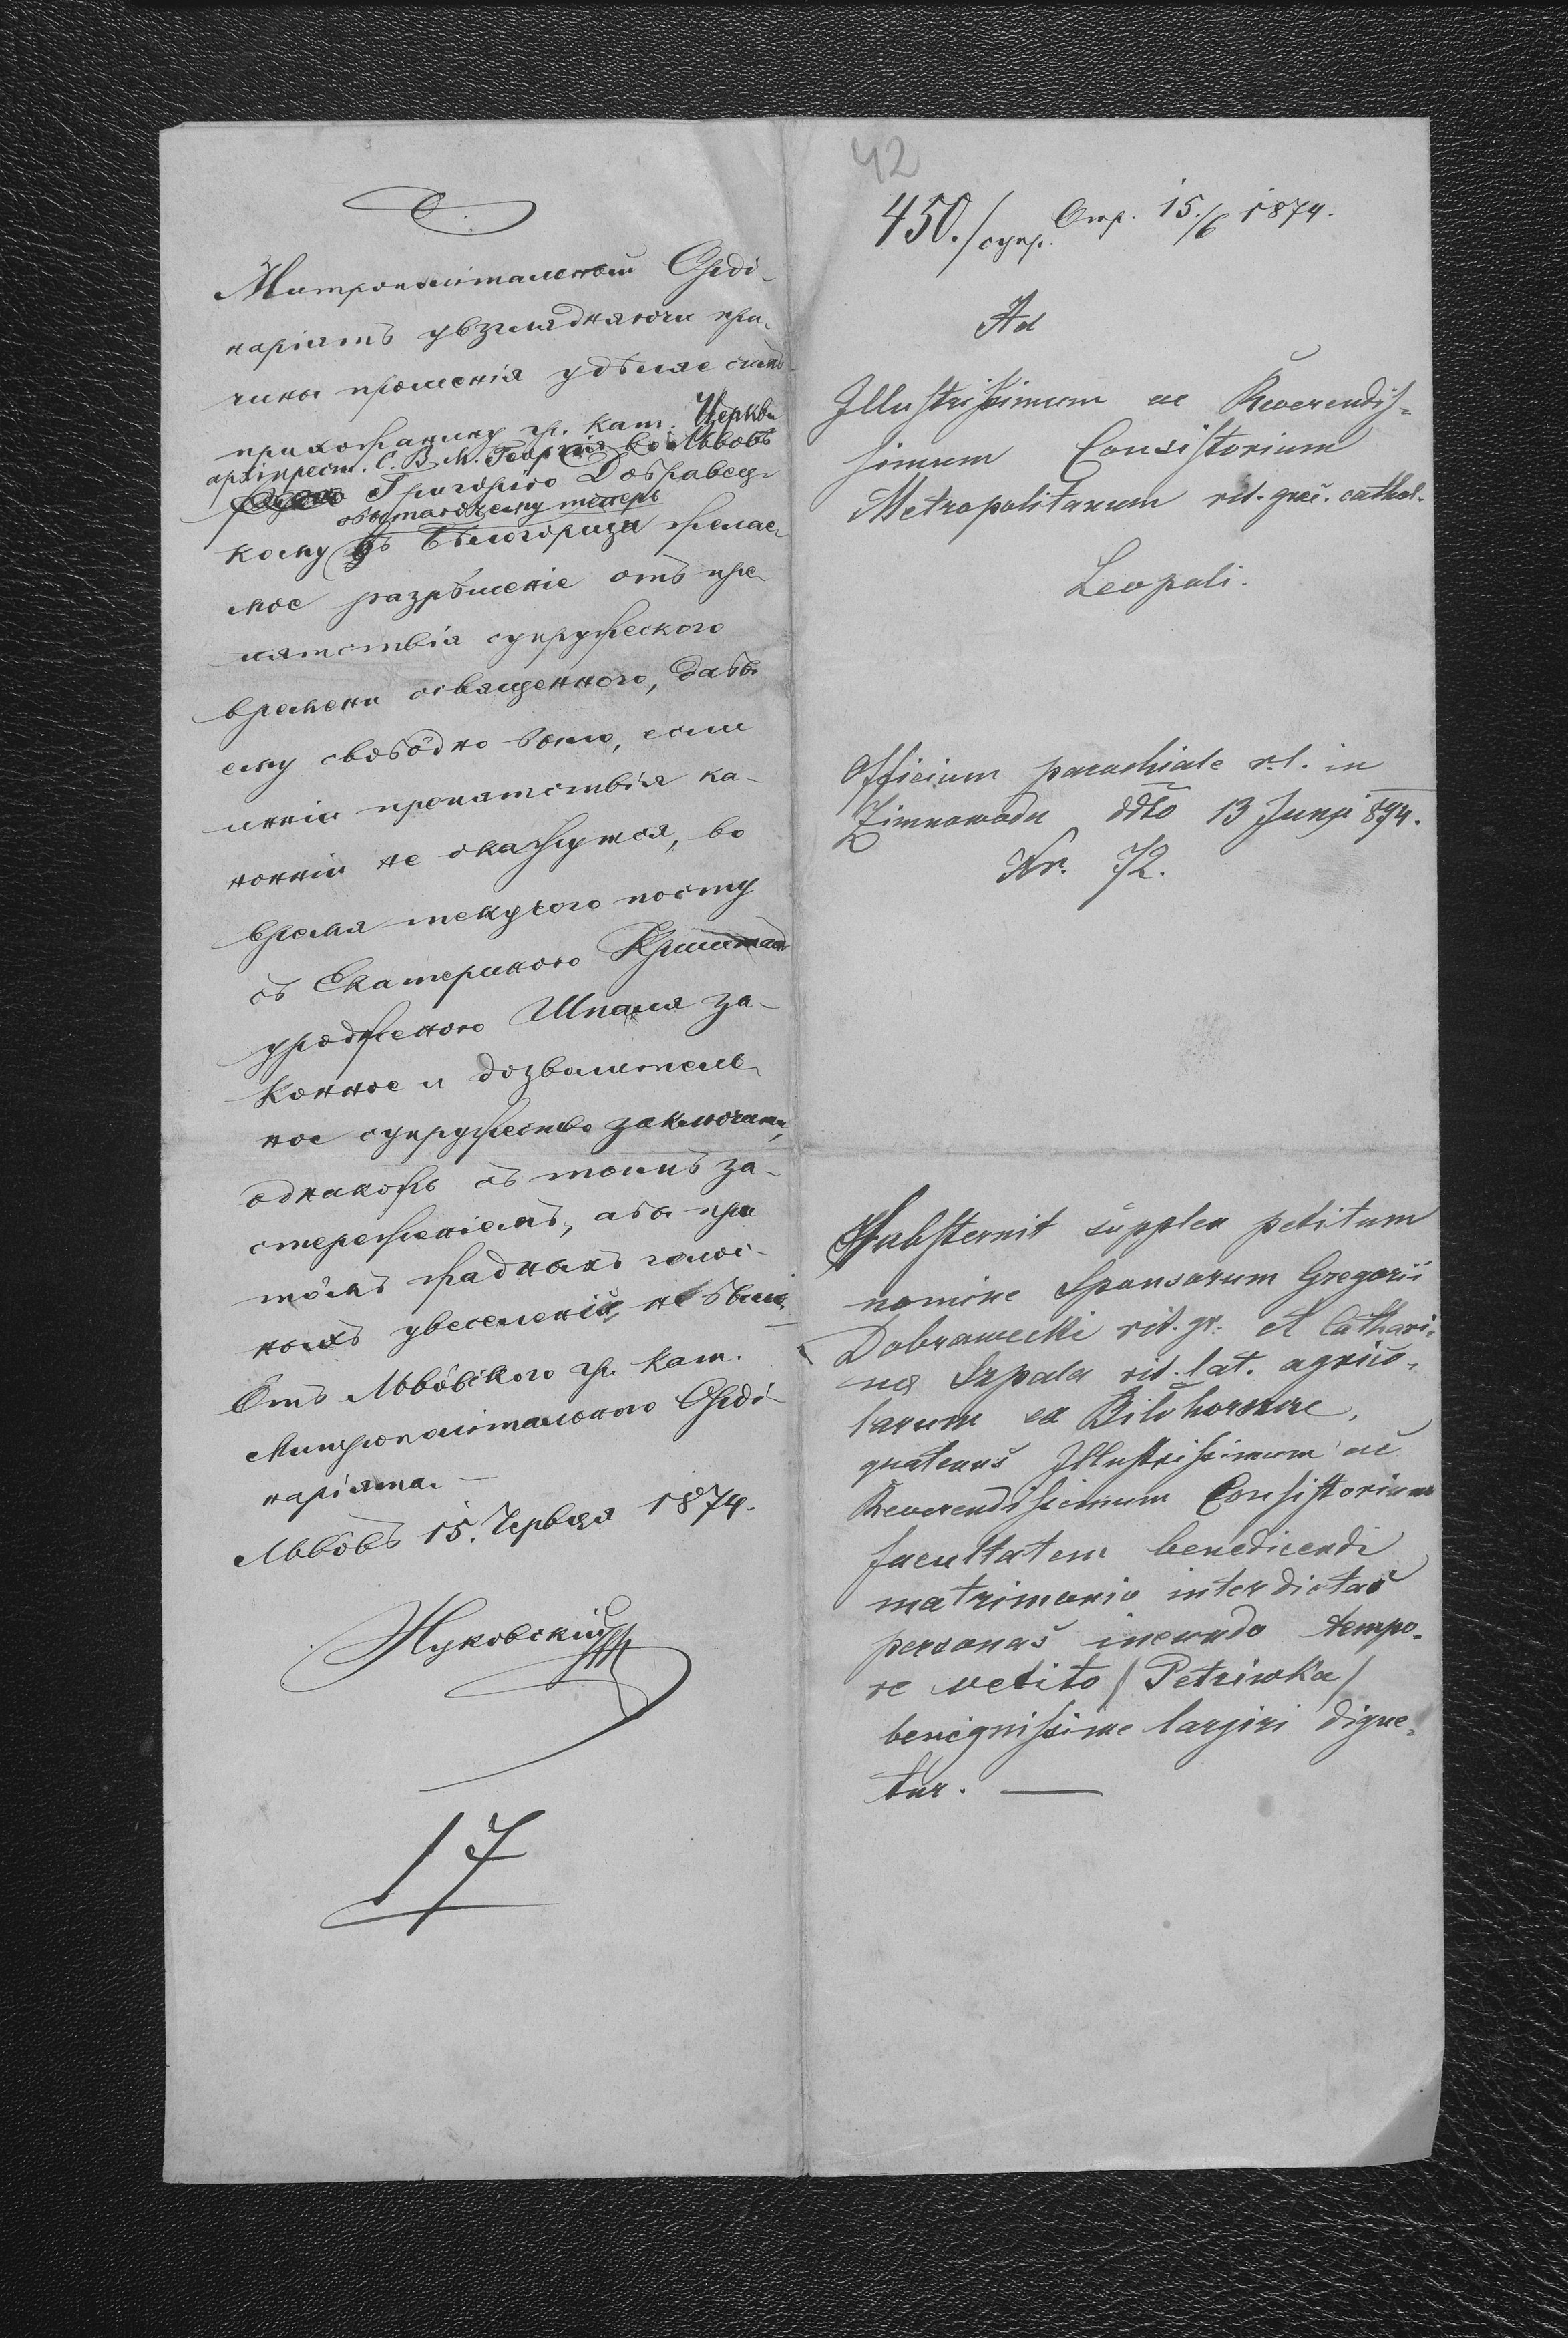 Митрополітальный Орді-
наріятъ увзглядняючи при-
чины прошенія удѣляе симъ
прихожанину гр. кат. Церкви
архіпрест. С. В. М. Георгія во Львовѣ
Григорію Добравец-
обытаючему теперь
кому въ Бѣлогорищи желае-
мое разрѣшеніе отъ пре-
пятствія супружеского
времени освященного, дабы
ему свобôдно было, если
иннiи препятствія ка-
нонніи не окажутся, во
время текучого посту
съ Екатериною
урожденою Шпаля за-
конное и дозволитель-
ное супружество заключити,
однакожь съ тымъ за-
стереженіемъ, абы при
тôмъ жадныхъ голос-
ныхъ увеселеній не было
Отъ Львôвского гр. кат.
Митрополітального Орді-
наріята. —
Львôвъ 15. Червця 1874.
Жуковскій
17
42
450./супр. Отр. 15./6 1874.
Ad
Illustrissimum ac Reverendis=
simum Consistorium
Metropolitanum rit. graec. cathol.
Leopoli.
Officium parochiale r. l. in
Zimnawoda ddto 13 Junji 874.
Nr. 72.
Substernit supplex petitum
nomine Sponsorum Gregorii
Dobrawecki rit. gr. et Cathari-
na Szpala rit. lat. agrico-
larum ex Biłohorszcze,
quatenus Illustrissimum ac
Reverendissimum Consistorium
facultatem benedicendi
matrimonio interdictas
personas ineundo tempo-
re vetito /Petriwka/
benignissime largiri digne-
tur. —